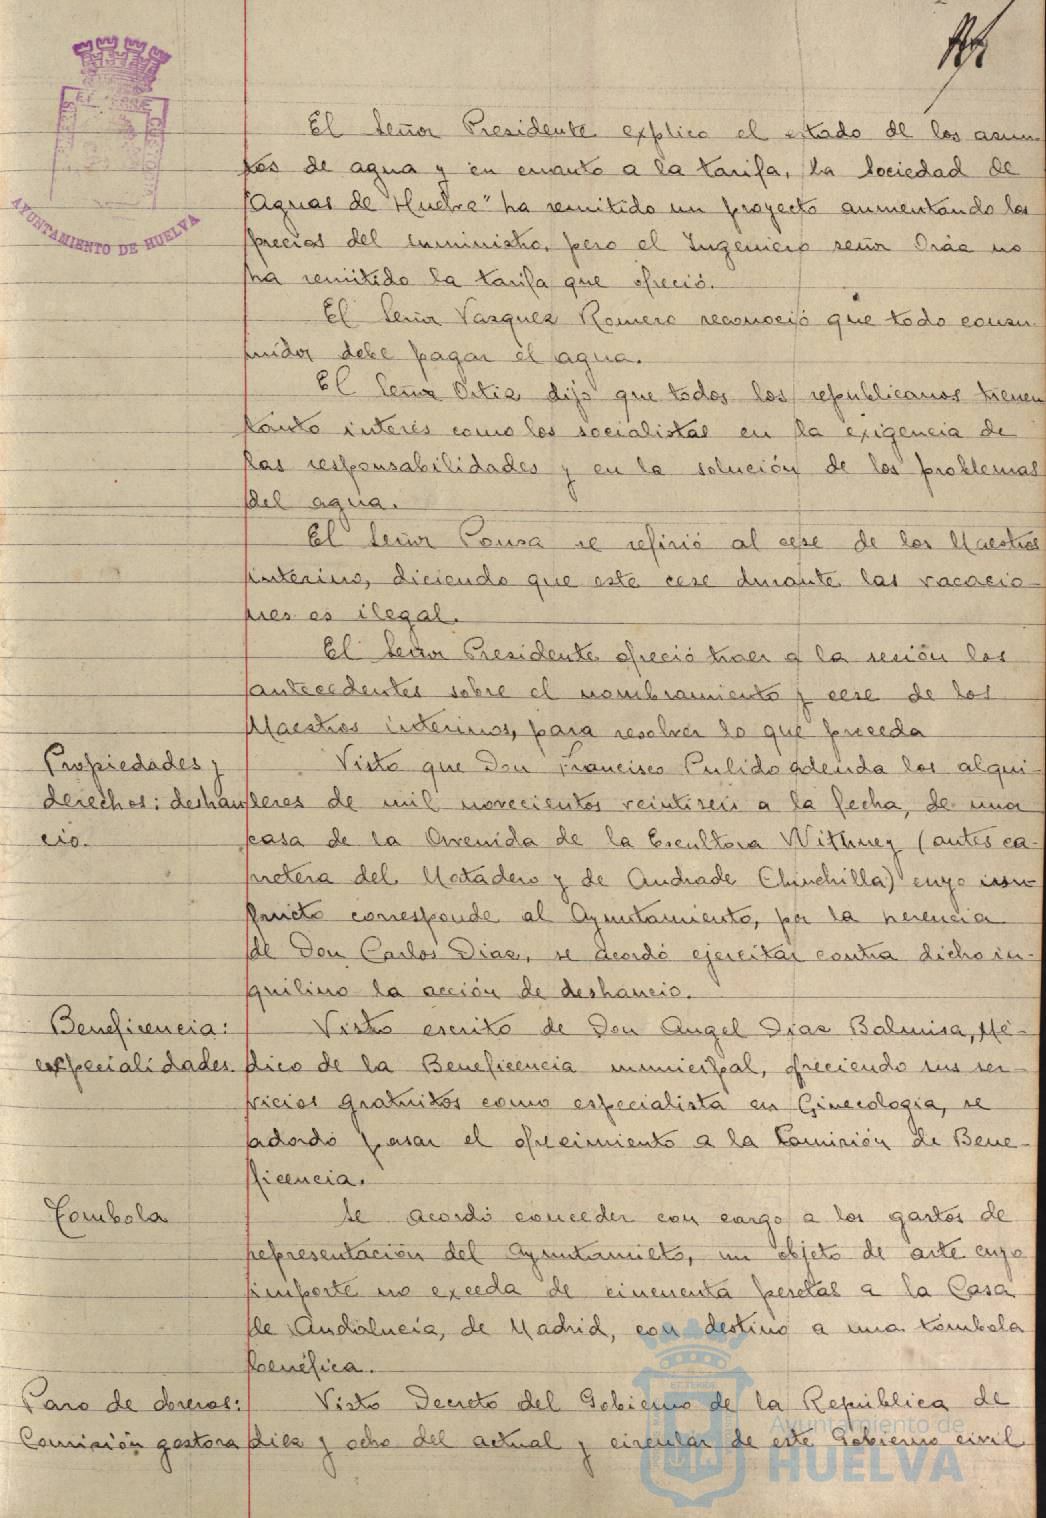 AYUNTAMIENTO DE HUELVA
El Señor Presidente explico el estado de los asun-
tos de agua y en cuanto a la tarifa, la Sociedad de
"Aguas de Huelva" ha remitido un proyecto aumentando los
precios del suministro, pero el Ingeniero señor Oráa no
ha remitido la tarifa que ofreció.
El Señor Vazquez Romero reconoció que todo consu-
midor debe pagar el agua.
El Señor Ortiz dijo que todos los republicanos tienen
tanto interés como los socialistas en la exigencia de
las responsabilidades y en la solución de los problemas
del agua.
El Señor Ponsa se refirió al cese de los Maestros
interinos, diciendo que este cese durante las vacacio-
nes es ilegal.
El Señor Presidente ofreció traer a la sesión los
antecedentes sobre el nombramiento y cese de los
Maestros interinos, para resolver lo que proceda
Propiedades y
derechos: deshau
cio.
Visto que Don Francisco Pulido adeuda los alqui-
leres de mil novecientos veintiseis a la fecha, de una
casa de la Avenida de la Escultora Withney (antes ca-
rretera del Matadero y de Andrade Chinchilla) cuyo usu-
fructo corresponde al Ayuntamiento, por la herencia
de Don Carlos Diaz, se acordó ejercitar contra dicho in-
quilino la acción de deshaucio.
Beneficencia:
especialidades.
Visto escrito de Don Angel Diaz Balmisa, Mé-
dico de la Beneficencia municipal, ofreciendo sus ser-
vicios gratuitos como especialista en Ginecología, se
acordó pasar el ofrecimiento a la Comisión de Bene-
ficencia.
Tombola
Se acordó conceder con cargo a los gastos de
representación del Ayuntamieto, un objeto de arte cuyo
importe no exceda de cincuenta pesetas a la Casa
de Andalucía, de Madrid, con destino a una tómbola
benéfica.
Paro de obreros:
Comisión gestora
Visto Decreto del Gobierno de la República de
diez y ocho del actual y circular de este Gobierno civil
Ayuntamiento de
HUELVA